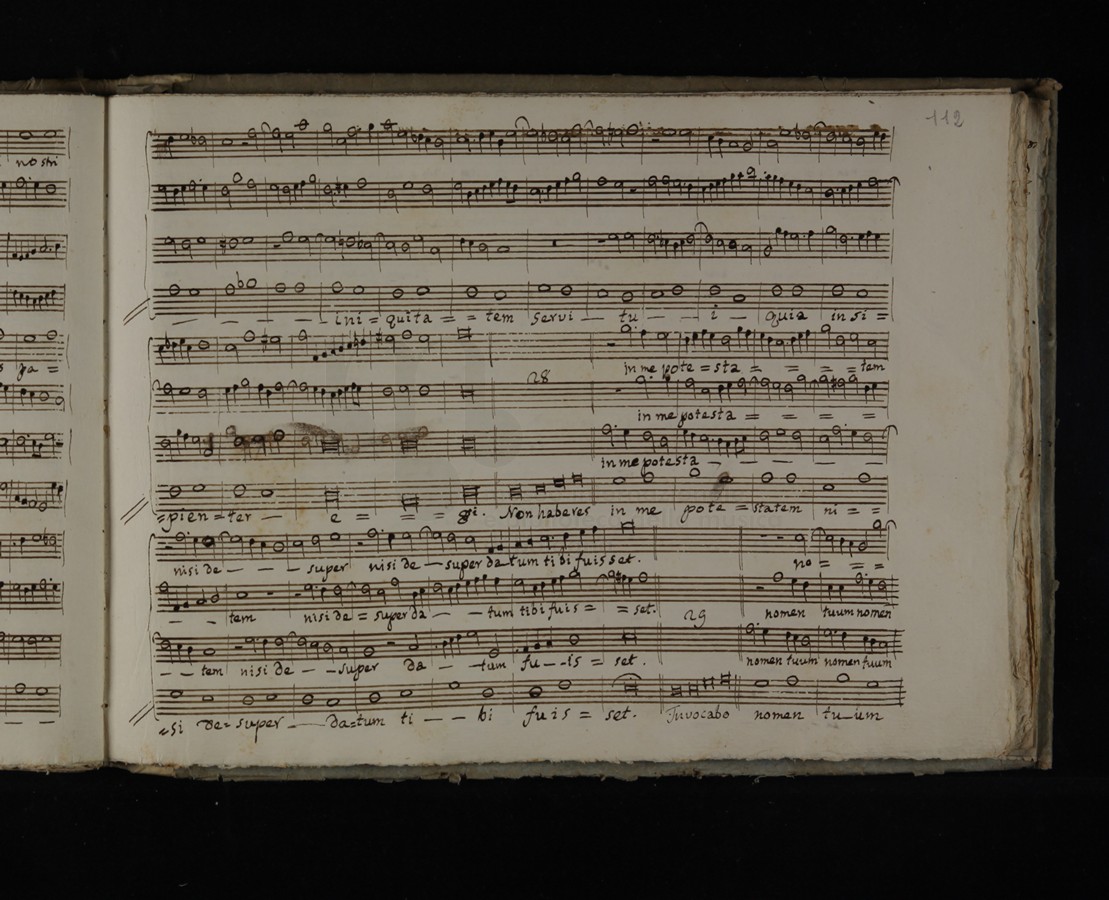 112
nostri
_ _ _ _ ini = quita = = tem servi _ tu _ _ i _ quia insi =
ga =
in me pote = sta = = = = = tem
28
in me potesta = = = =
in me potesta _ _ _ _ _
= pien = ter _ e = = = gi. Non haberes in me pote = statem ni = =
nisi de _ _ _ super nisi de _ super da tum tibi fuis set. no = = =
_ _ tem nisi de = super da _ _ tum tibi fuis = = set. nomen tuum nomen
29
_ _ tem nisi de _ _ super da _ _ tum fu _ _ is = set. nomen tuum nomen tuum
= si de = super _ _ da = tum ti _ _ bi fuis = set. Invocabo nomen tu _ um